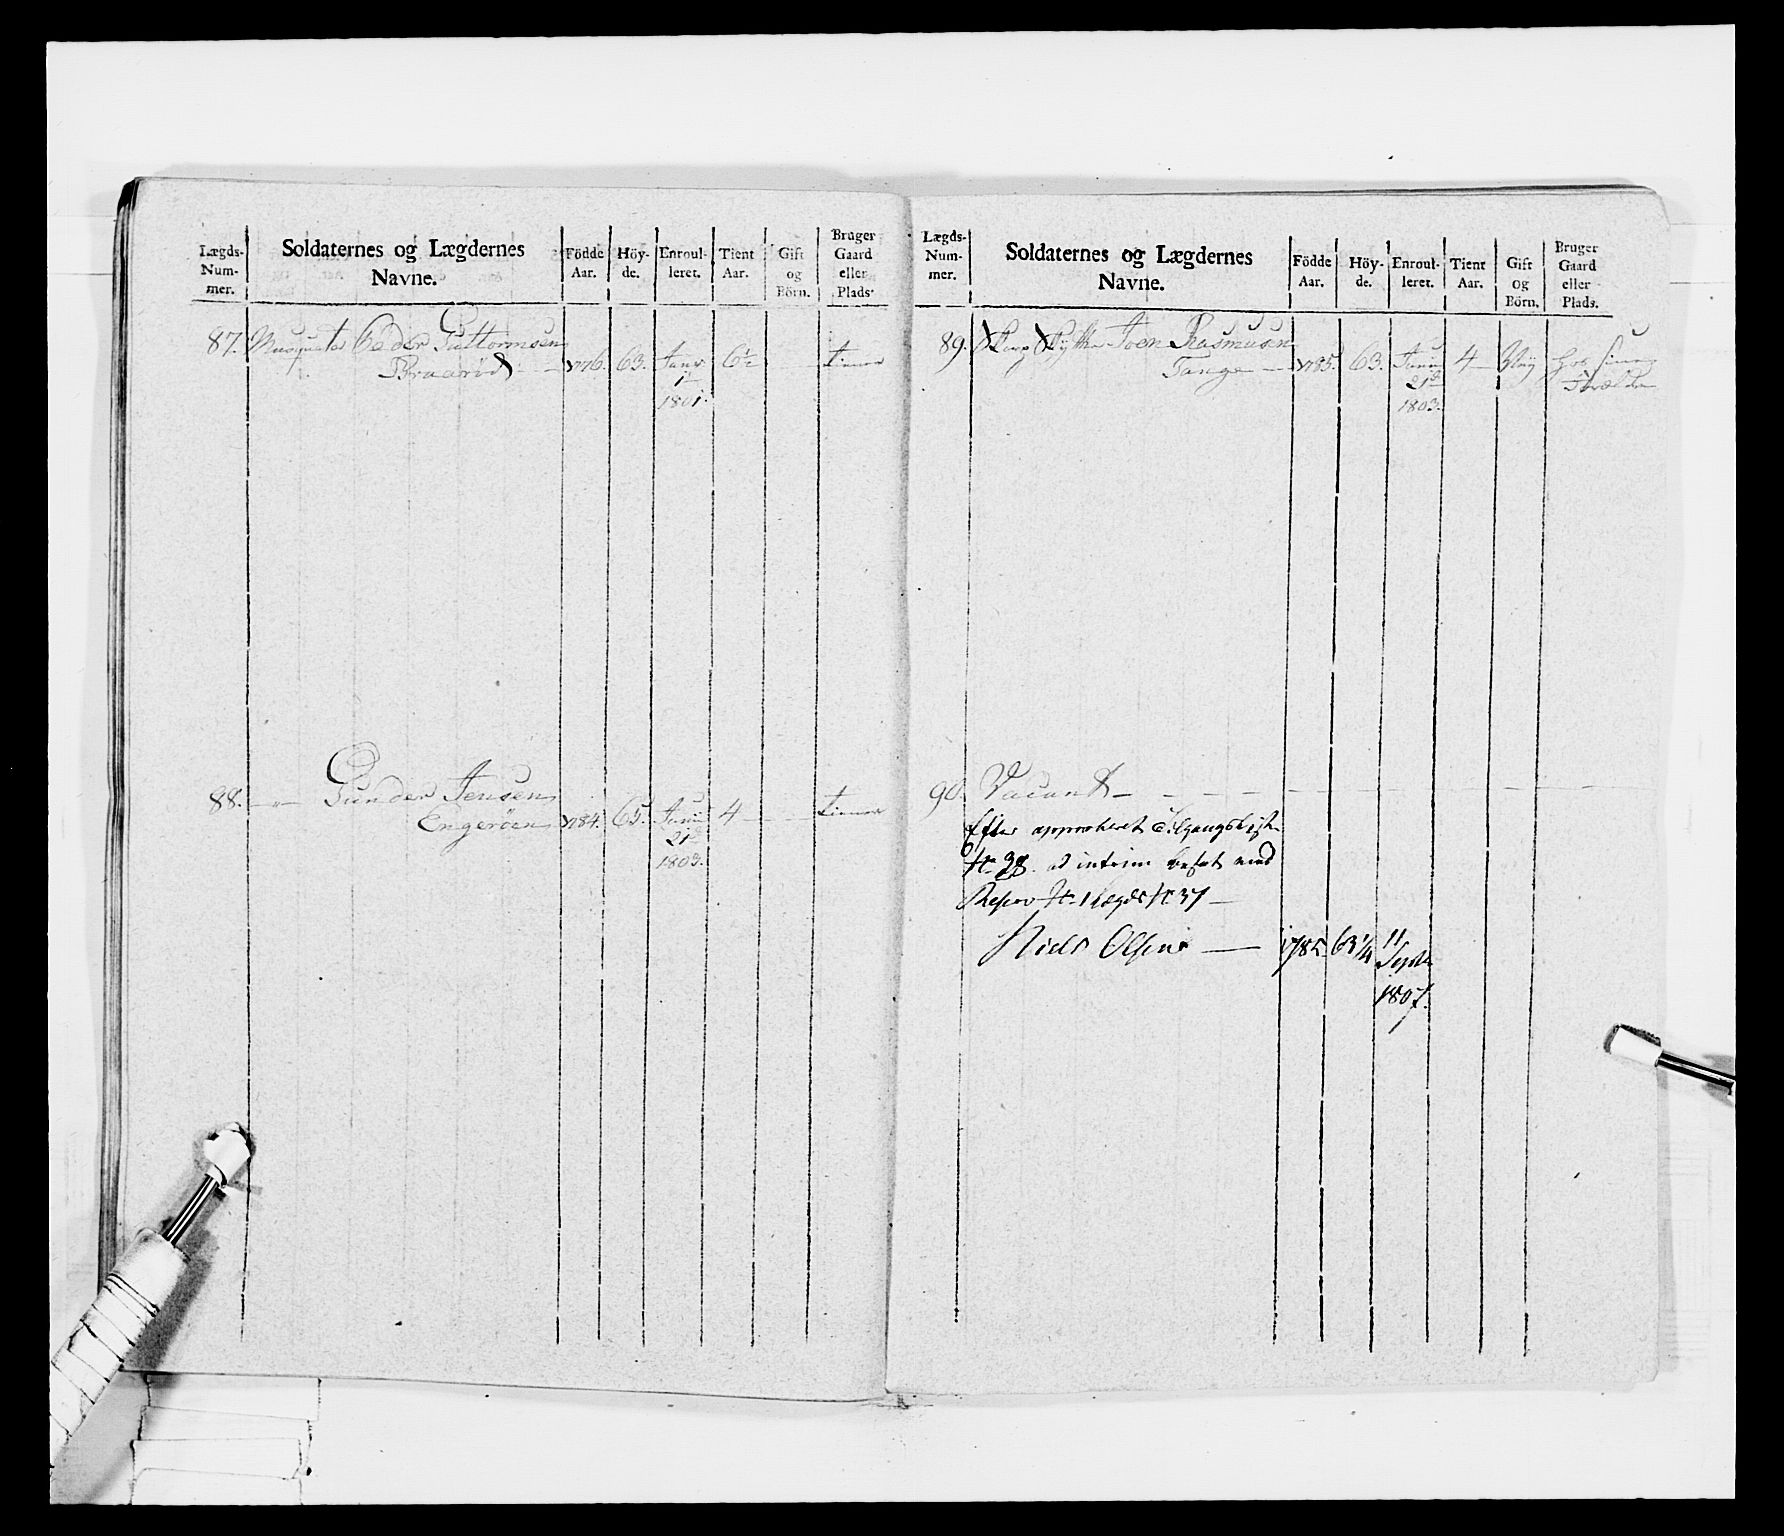 Lægds-
Num-
mer.
Soldaternes og Lægdernes
Navne.
Födde
Aar.
Höy-
de.
Enroul-
leret.
Tient
Aar.
Gift
og
Börn.
Bruger
Gaard
eller
Plads.
87. Musqueteer Peder Guttormsen
Braarød 1776. 63. Janv. 6½ tiener
1
1801.
88. —"— Gunder Jensen
Engeröen 1784. 65. Junii 4 — tiener
21de
1803.
Lægds-
Num-
mer.
Soldaternes og Lægdernes
Navne.
Födde
Aar.
Höy-
de.
Enroul-
leret.
Tient
Aar.
Gift
og
Börn.
Bruger
Gaard
eller
Plads.
89. Skarp Skytter Joen Rasmusn
Tange — 1785. 63. Junii 4 — Nei hos sine
21de Forældre
1803.
90. Vacant —
Efter approberet Tilgangsliste
No 28. ad interim besat med
Reserv No 1 Lægds No 37 —
Niels Olsen — 1785. 63¼ 11
Septr
1807.